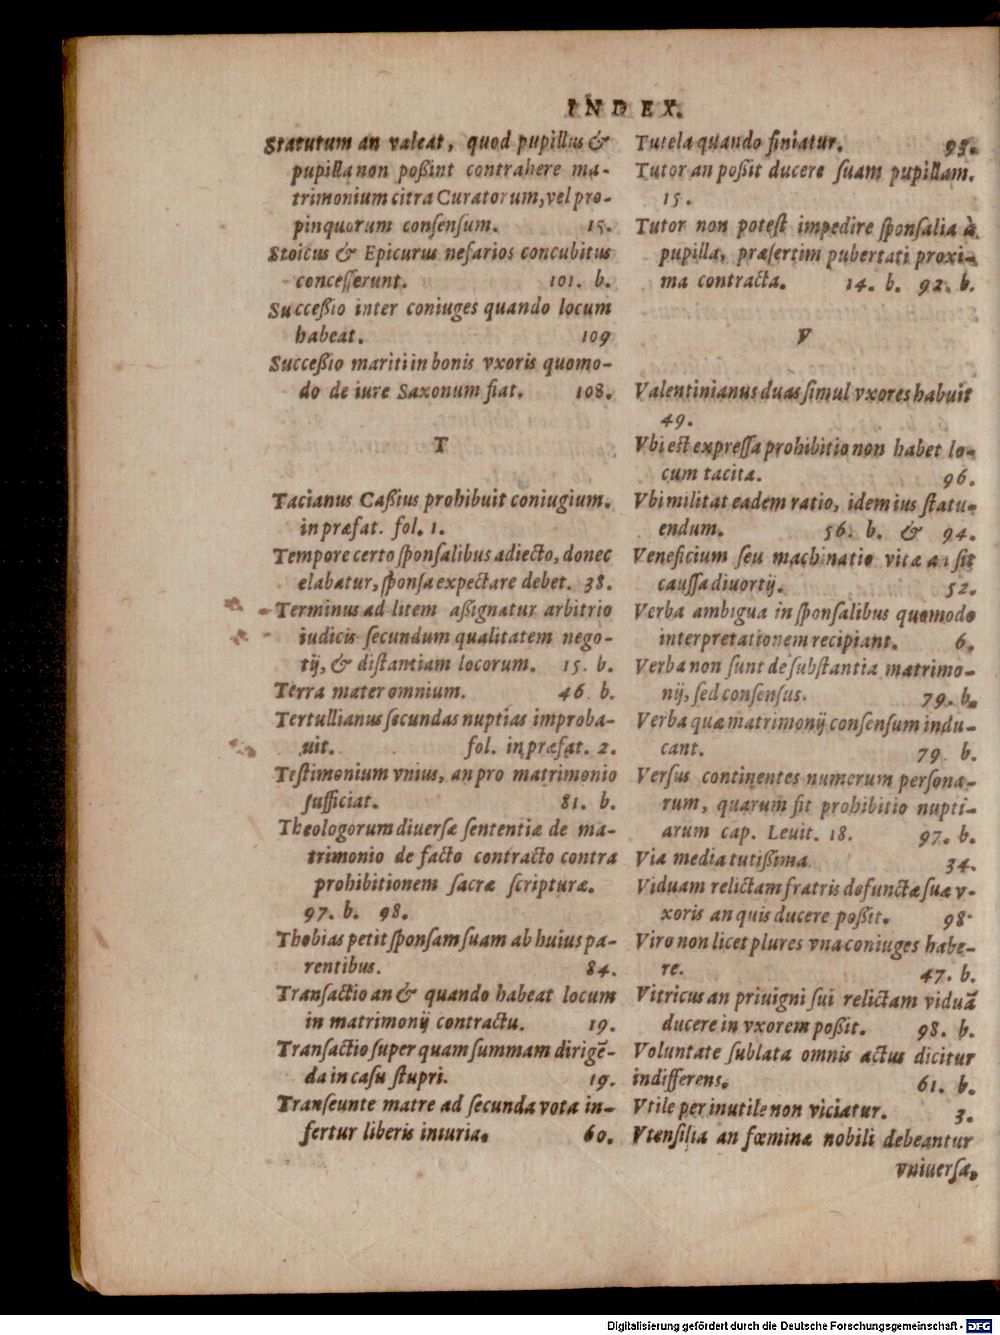 INDEX.
Statutum an valeat, quod pupillus &
pupilla non poßint contrahere ma-
trimonium citra Curatorum, vel pro-
pinquorum consensum. 15.
Stoicus & Epicurus nefarios concubitus
concesserunt. 101. b.
Succeßio inter coniuges quando locum
habeat. 109
Succeßio mariti in bonis vxoris quomo-
do de iure Saxonum fiat. 108.
T
Tacianus Caßius prohibuit coniugium.
in præfat. fol. 1.
Tempore certo sponsalibus adiecto, donec
elabatur, sponsa expectare debet. 38.
Terminus ad litem aßignatur arbitrio
iudicis secundum qualitatem nego-
tij, & distantiam locorum. 15. b.
Terra mater omnium. 46 b.
Tertullianus secundas nuptias improba-
uit. fol. in præfat. 2.
Testimonium vnius, an pro matrimonio
sufficiat. 81. b.
Theologorum diuersæ sententiæ de ma-
trimonio de facto contracto contra
prohibitionem sacræ scripturæ.
97. b. 98.
Thobias petit sponsam suam ab huius pa-
rentibus. 84.
Transactio an & quando habeat locum
in matrimonij contractu. 19.
Transactio super quam summam dirigē-
da in casu stupri. 19.
Transeunte matre ad secunda vota in-
fertur liberis iniuria. 60.
Tutela quando finiatur. 95.
Tutor an poßit ducere suam pupillam.
15.
Tutor non potest impedire sponsalia à
pupilla, præsertim pubertati proxi-
ma contracta. 14. b. 92. b.
V
Valentinianus duas simul vxores habuit
49.
Vbi est expressa prohibitio non habet lo-
cum tacita. 96.
Vbi militat eadem ratio, idem ius statu-
endum. 56. b. & 94.
Veneficium seu machinatio vitæ an sit
caussa diuortij. 52.
Verba ambigua in sponsalibus quomodo
interpretationem recipiant. 6.
Verba non sunt de substantia matrimo-
nij, sed consensus. 79. b.
Verba quæ matrimonij consensum indu-
cant. 79 b.
Versus continentes numerum persona-
rum, quarum sit prohibitio nupti-
arum cap. Leuit. 18. 97. b.
Via media tutißima 34.
Viduam relictam fratris defunctæ suæ v-
xoris an quis ducere poßit. 98.
Viro non licet plures vna coniuges habe-
re. 47. b.
Vitricus an priuigni sui relictam viduā
ducere in vxorem poßit. 98. b.
Voluntate sublata omnis actus dicitur
indifferens. 61. b.
Vtile per inutile non viciatur. 3.
Vtensilia an fœminæ nobili debeantur
vniuersa,
Digitalisierung gefördert durch die Deutsche Forschungsgemeinschaft - DFG